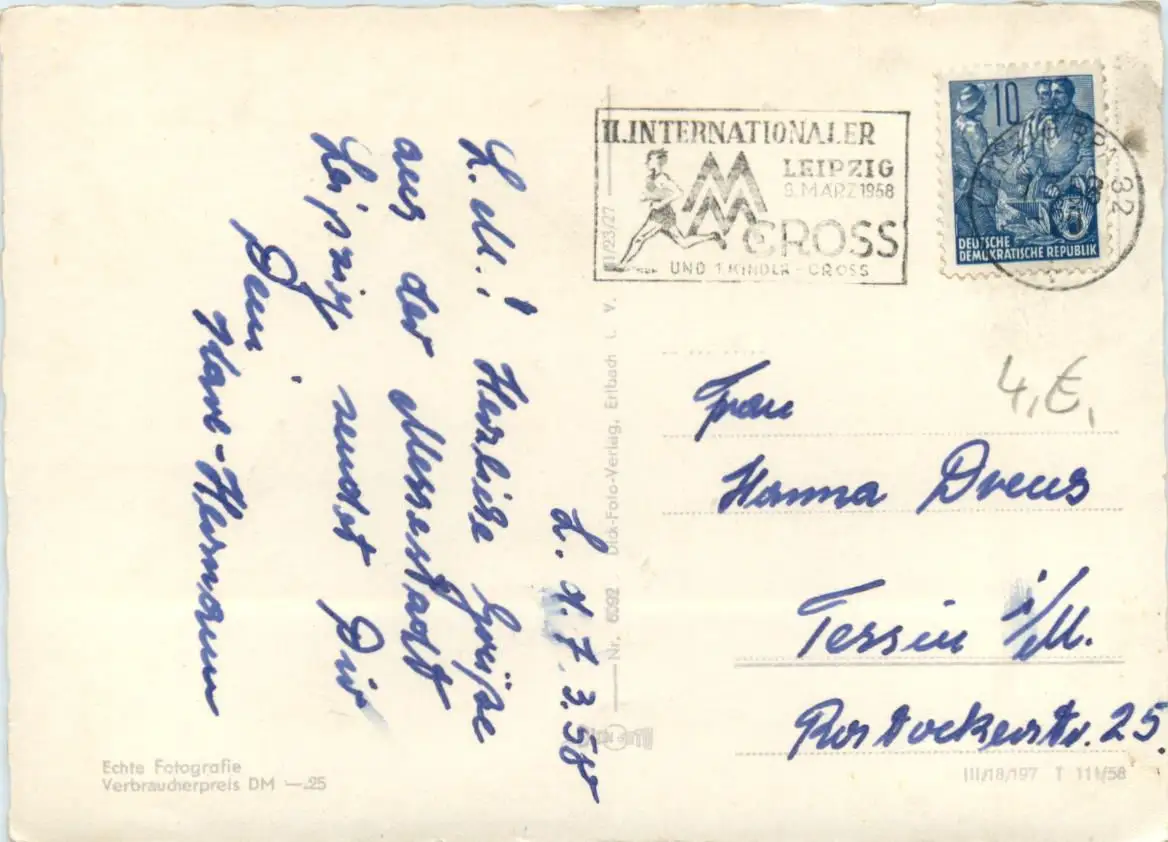 L. d. 7. 3. 58
L. M.! Herzliche Grüße
aus der Messestadt
Leipzig sendet Dir
Dein
Karl-Hermann
Echte Fotografie
Verbraucherpreis DM —.25
Nr. 6092 Dick-Foto-Verlag, Erlbach i. V.
II. INTERNATIONALER
LEIPZIG
9. MÄRZ 1958
MM
CROSS
UND 1. KINDER-CROSS
10
DEUTSCHE
DEMOKRATISCHE REPUBLIK
32
4,€,
Frau
Hanna Drews
Tessin i/M.
Rostockerstr. 25.
III/18/197 T 111/58